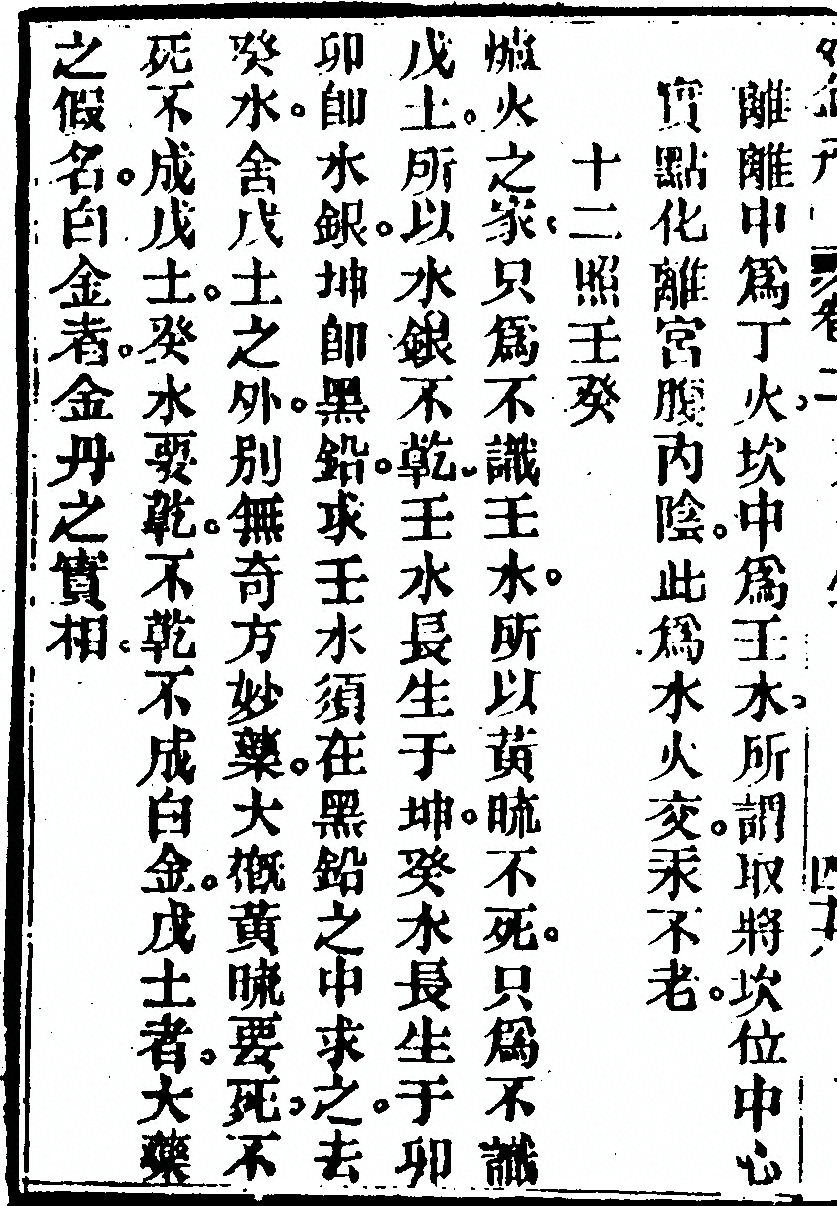 離離中爲丁火。坎中爲壬水。所謂取將坎位中心
實點化離宮腹內陰。此爲水火交。汞不老。
十二照壬癸
爐火之家。只爲不識壬水。所以黃硫不死。只爲不識
戊土。所以水銀不乾。壬水長生于坤。癸水長生于卯
卯卽水銀。坤卽黑鉛。求壬水須在黑鉛之中求之。去
癸水。舍戊土之外。別無奇方妙藥。大槪黃硫要死。不
死不成戊土。癸水要乾。不乾不成白金。戊土者。大藥
之假名。白金者。金丹之實相。